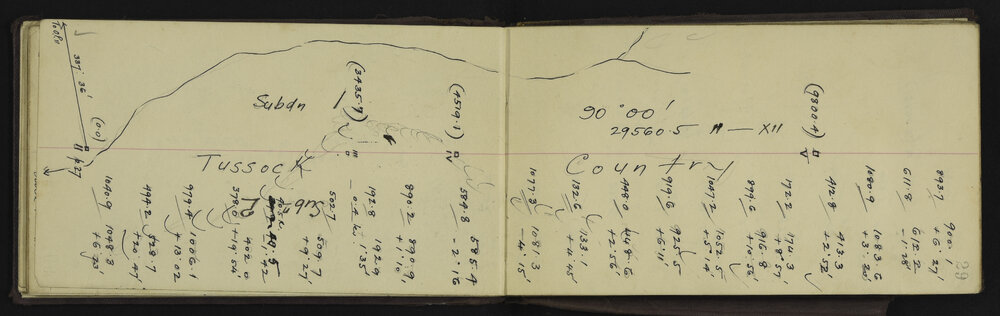 To Old
337° 36'
(0.0)
II
627
Subdn I
(3435.7)
III
(4519.1)
IV
90° 00'
29560.5 II — XII
(9800.4)
V
Tussock Country
Subdn
29
1040.9 1048.3
+ 6° 23'
494.2 528.7
979.4 1006.1
+ 13.02
398.6 402.0
502.7 509.7
+ 9.27'
192.8 192.9
890.2 890.9
+ 1.10'
584.8 585.4
- 2.16
1077.8 1081.3
- 4° 15'
132.6 133.1
+ 4.45'
448.0
+ 2.56'
919.6 925.5
+ 6.11'
1047.2 1052.5
+ 5.14'
899.6 916.8
+ 10.56'
172.2 174.3
+ 8.57'
412.8 413.3
+ 2.52'
1080.9 1083.6
611.8 612.2
- 1.28'
893.7 900.1
+ 6.27'